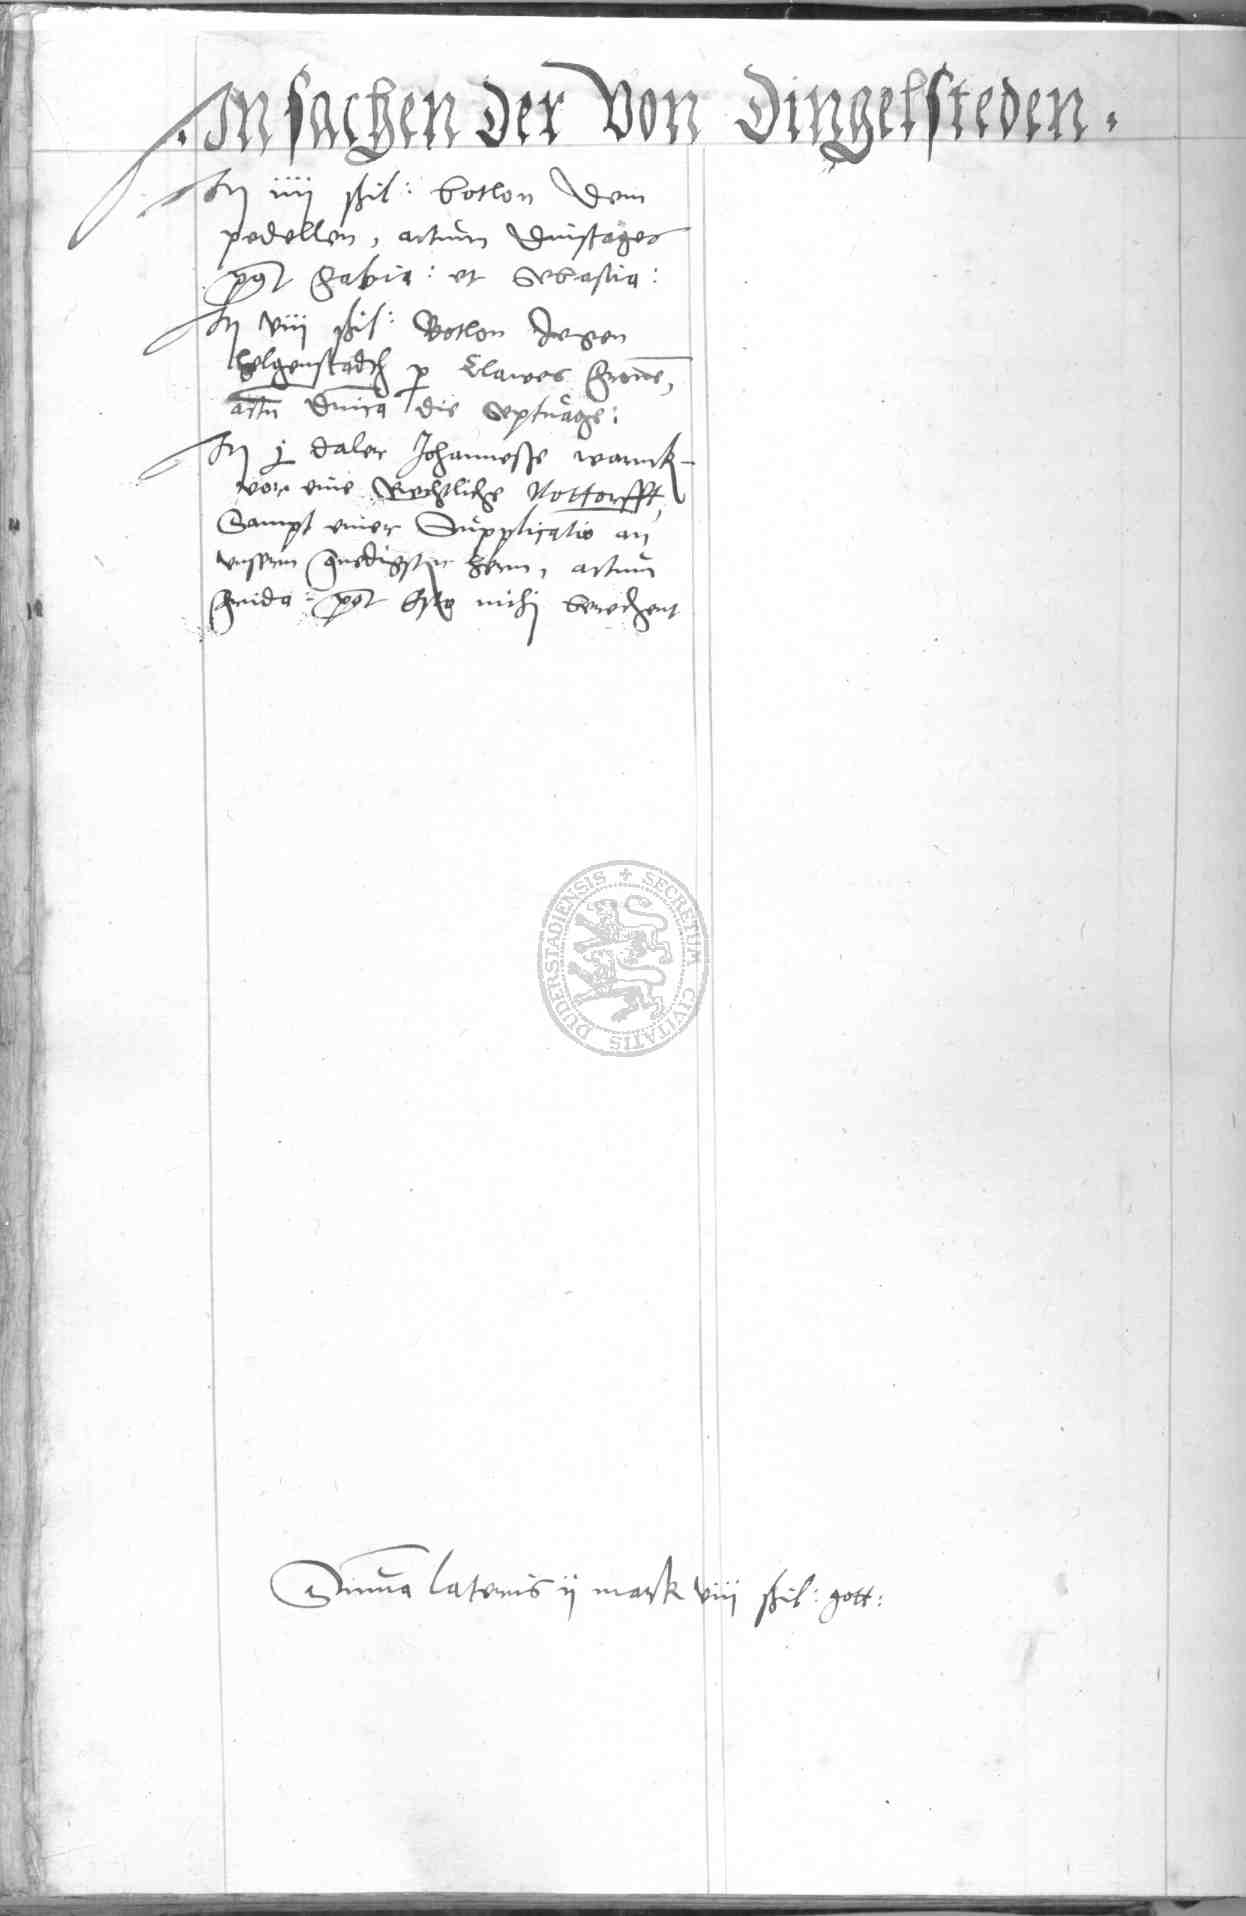 . In sachen der von Dingelsteden .
It iiij ßil: botlon dem
pedellen, actum dinstages
post Fabia: et Sebastia:
It viij ßil: Botlon gegen
helgenstadt p Clawes
actu dnica die Septuage:
It j daler Johannesse warnek
vor eine Rechtliche Nottorfft,
Sampt einer Supplicatio an
unsern gnedigsten hern, actum
frida: post mihi berechent
Summa lateris ij mark viij ßil: gott:
DUDERSTADIENSIS + SECRETUM CIVITATIS